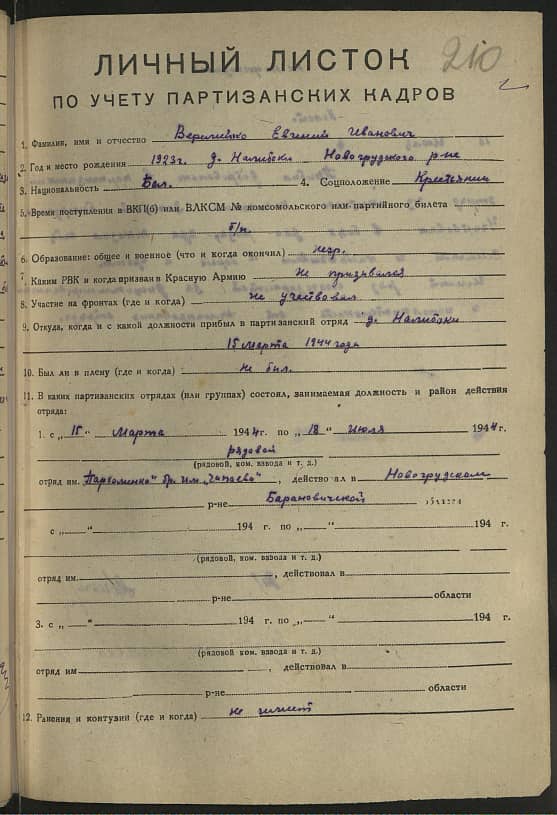 210
ЛИЧНЫЙ ЛИСТОК
ПО УЧЕТУ ПАРТИЗАНСКИХ КАДРОВ
1. Фамилия, имя и отчество Веремейко Евгений Иванович
2. Год и место рождения 1923г. д. Налибоки Новогрудского р-не
3. Национальность Бел. 4. Соцположение Крестьянин
5. Время поступления в ВКП(б) или ВЛКСМ № комсомольского или партийного билета
б/п.
6. Образование: общее и военное (что и когда окончил)
7. Каким РВК и когда призван в Красную Армию Не призывался
8. Участие на фронтах (где и когда) не участвовал
9. Откуда, когда и с какой должности прибыл в партизанский отряд д. Налибоки
15 марта 1944 года
10. Был ли в плену (где и когда) не был.
11. В каких партизанских отрядах (или группах) состоял, занимаемая должность и район действия
отряда:
1. с „15" марта 1944г. по „18" июля 1944г.
рядовой
(рядовой, ком. взвода и т. д.)
отряд им. „Пархоменко" бр. им. „Чапаева", действовал в Новогрудском
р-не Барановичской области
с „ " 194 г. по „ " 194 г.
(рядовой, ком. взвода и т. д.)
отряд им. , действовал в
р-не области
3. с „ " 194 г. по „ " 194 г.
(рядовой, ком. взвода и т. д.)
отряд им , действовал в
р-не области
12. Ранения и контузии (где и когда) не имеет